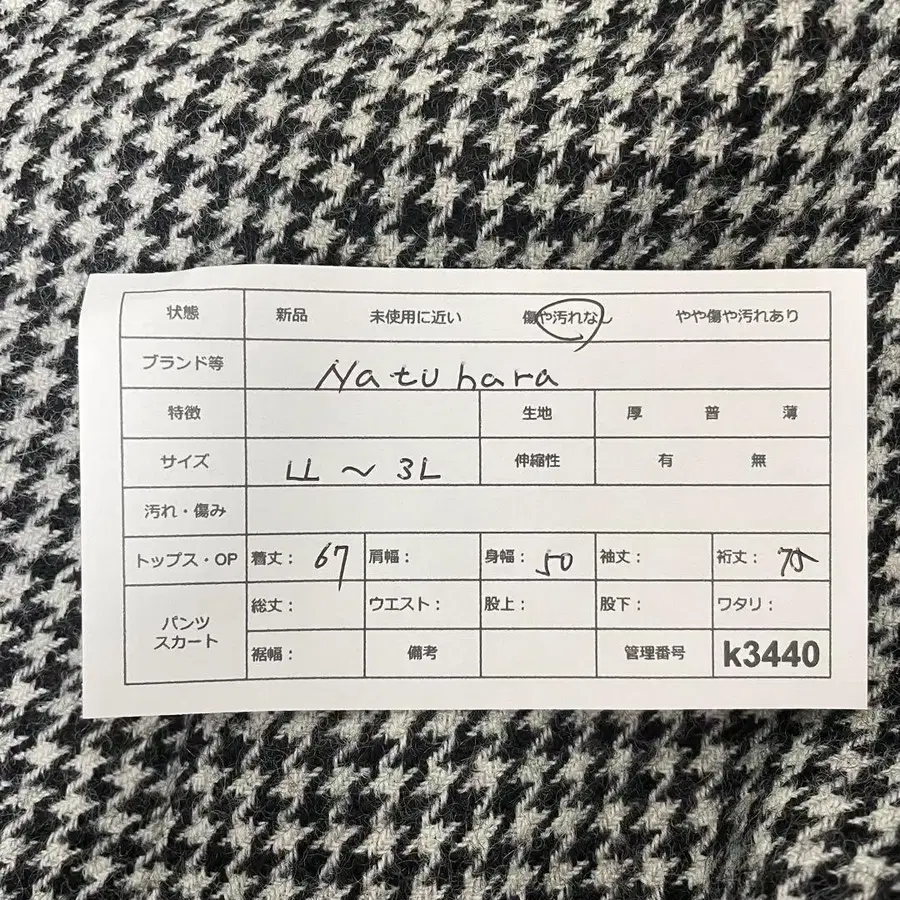 状態 新品 未使用に近い 傷や汚れなし やや傷や汚れあり
ブランド等 Natuhara
特徴 生地 厚 普 薄
サイズ LL～3L 伸縮性 有 無
汚れ・傷み
トップス・OP 着丈：67 肩幅： 身幅：50 袖丈： 裄丈：75
パンツ スカート 総丈： ウエスト： 股上： 股下： ワタリ：
裾幅： 備考 管理番号 k3440